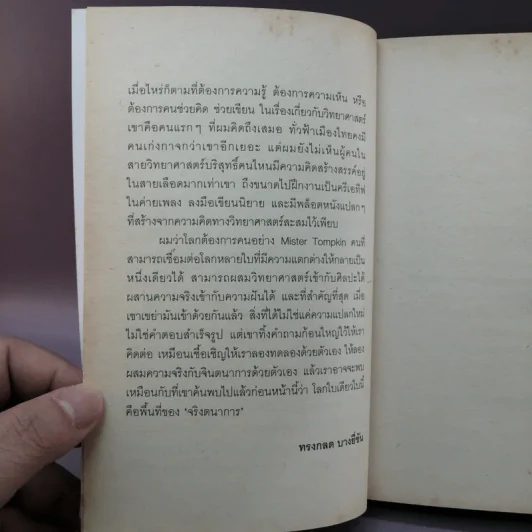 เมื่อไหร่ก็ตามที่ต้องการความรู้ ต้องการความเห็น หรือ
ต้องการคนช่วยคิด ช่วยเขียน ในเรื่องเกี่ยวกับวิทยาศาสตร์
เขาคือคนแรกๆ ที่ผมคิดถึงเสมอ ทั่วฟ้าเมืองไทยคงมี
คนเก่งกาจกว่าเขาอีกเยอะ แต่ผมยังไม่เห็นผู้คนใน
สายวิทยาศาสตร์บริสุทธิ์คนไหนมีความคิดสร้างสรรค์อยู่
ในสายเลือดมากเท่าเขา ถึงขนาดไปฝึกงานเป็นครีเอทีฟ
ในค่ายเพลง ลงมือเขียนนิยาย และมีพล็อตหนังแปลกๆ
ที่สร้างจากความคิดทางวิทยาศาสตร์สะสมไว้เพียบ
ผมว่าโลกต้องการคนอย่าง Mister Tompkin คนที่
สามารถเชื่อมต่อโลกหลายใบที่มีความแตกต่างให้กลายเป็น
หนึ่งเดียวได้ สามารถผสมวิทยาศาสตร์เข้ากับศิลปะได้
ผสานความจริงเข้ากับความฝันได้ และที่สำคัญที่สุด เมื่อ
เขาเขย่ามันเข้าด้วยกันแล้ว สิ่งที่ได้ไม่ใช่แค่ความแปลกใหม่
ไม่ใช่คำตอบสำเร็จรูป แต่เขาทิ้งคำถามก้อนใหญ่ไว้ให้เรา
คิดต่อ เหมือนเชื้อเชิญให้เราลองทดลองด้วยตัวเอง ให้ลอง
ผสมความจริงกับจินตนาการด้วยตัวเอง แล้วเราอาจจะพบ
เหมือนกับที่เขาค้นพบไปแล้วก่อนหน้านี้ว่า โลกใบเดียวใบนี้
คือพื้นที่ของ 'จริงตนาการ'
ทรงกลด บางยี่ขัน